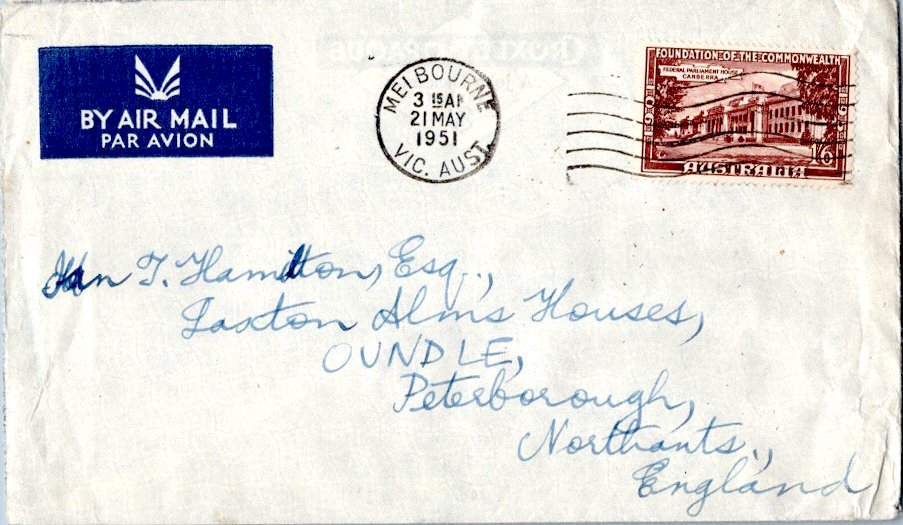 BY AIR MAIL
PAR AVION
MELBOURNE
3 15 AM
21 MAY
1951
VIC. AUST.
FOUNDATION OF THE COMMONWEALTH
FEDERAL PARLIAMENT HOUSE
CANBERRA
1901
1951
1/6
AUSTRALIA
T. Hamilton, Esq.,
Laxton Alms Houses,
OUNDLE,
Peterborough,
Northants.,
England